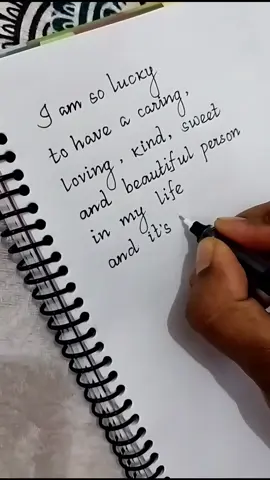 I am so lucky
to have a caring,
loving, kind, sweet
and beautiful person
in my life
and it's